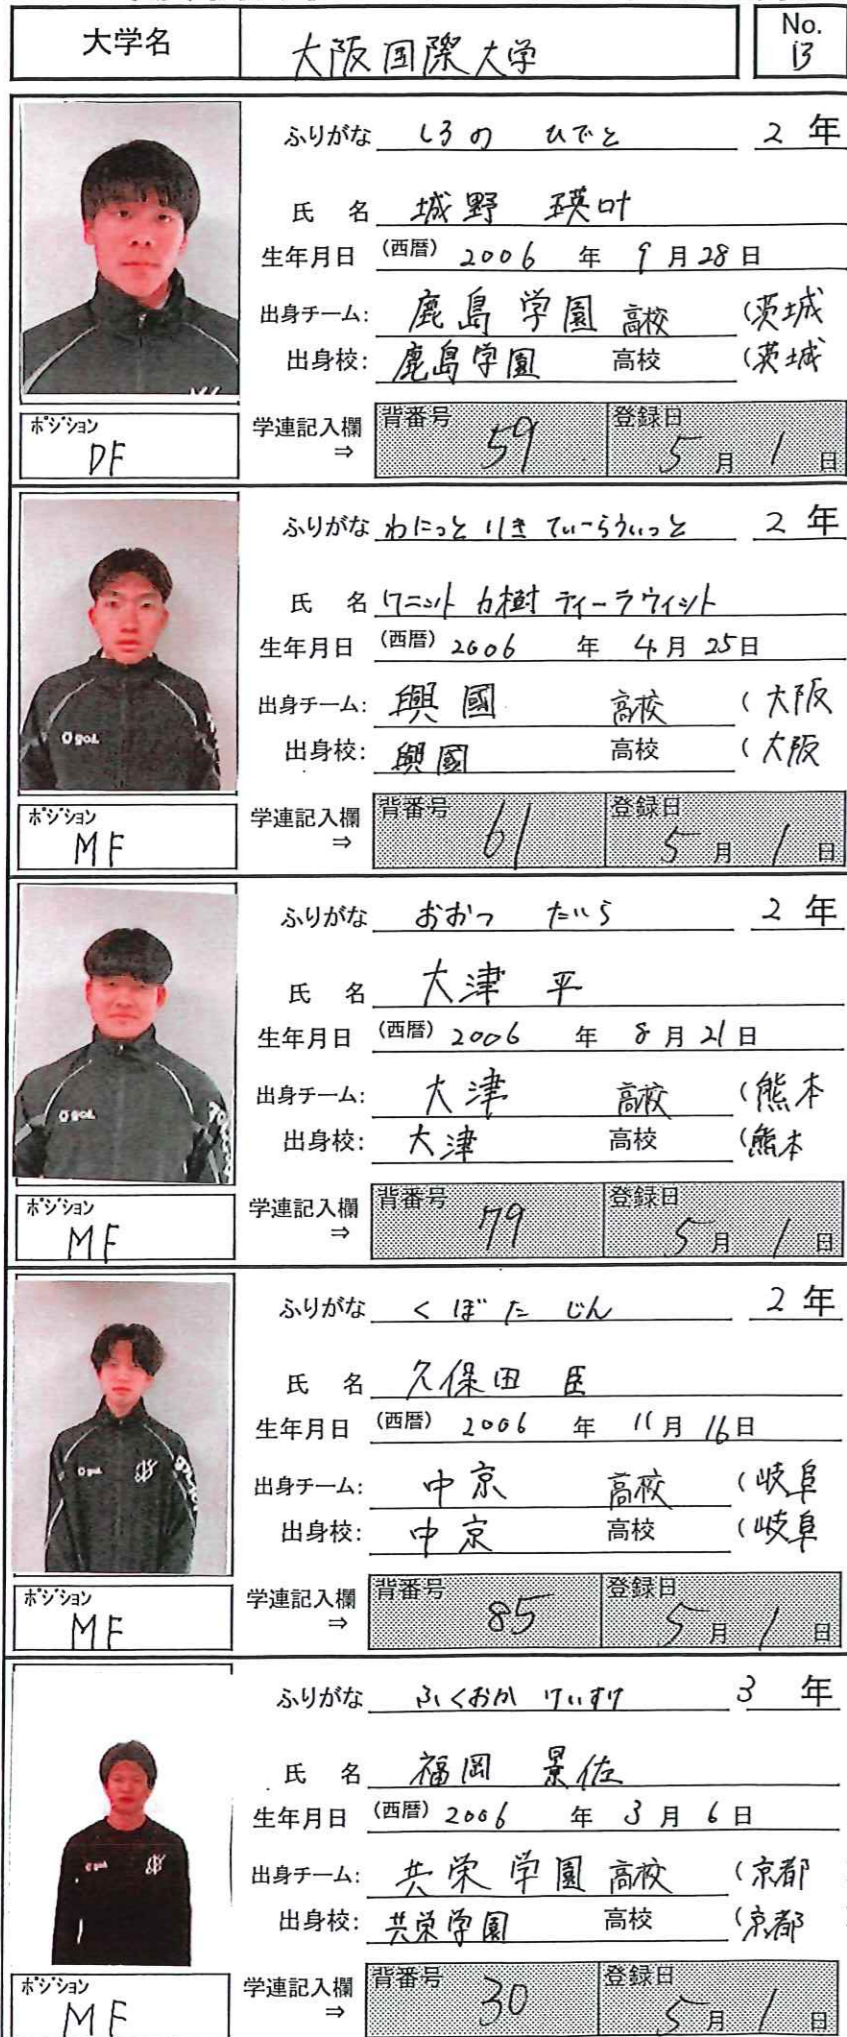 大学名 大阪国際大学 No. 13
ふりがな しろの ひでと 2 年
氏 名 城野 瑛叶
生年月日 (西暦) 2006 年 9 月 28 日
出身チーム: 鹿島学園 高校 (茨城
出身校: 鹿島学園 高校 (茨城
ポジション DF
学連記入欄 ⇒ 背番号 59 登録日 5 月 1 日
ふりがな わにっと りき てぃーらうぃっと 2 年
氏 名 ワニット 力樹 ティーラウィット
生年月日 (西暦) 2006 年 4 月 25 日
出身チーム: 興國 高校 (大阪
出身校: 興國 高校 (大阪
ポジション MF
学連記入欄 ⇒ 背番号 61 登録日 5 月 1 日
ふりがな おおつ たいら 2 年
氏 名 大津 平
生年月日 (西暦) 2006 年 8 月 21 日
出身チーム: 大津 高校 (熊本
出身校: 大津 高校 (熊本
ポジション MF
学連記入欄 ⇒ 背番号 79 登録日 5 月 1 日
ふりがな くぼた じん 2 年
氏 名 久保田 臣
生年月日 (西暦) 2006 年 11 月 16 日
出身チーム: 中京 高校 (岐阜
出身校: 中京 高校 (岐阜
ポジション MF
学連記入欄 ⇒ 背番号 85 登録日 5 月 1 日
ふりがな ふくおか けいすけ 3 年
氏 名 福岡 景佐
生年月日 (西暦) 2006 年 3 月 6 日
出身チーム: 共栄学園 高校 (京都
出身校: 共栄学園 高校 (京都
ポジション MF
学連記入欄 ⇒ 背番号 30 登録日 5 月 1 日